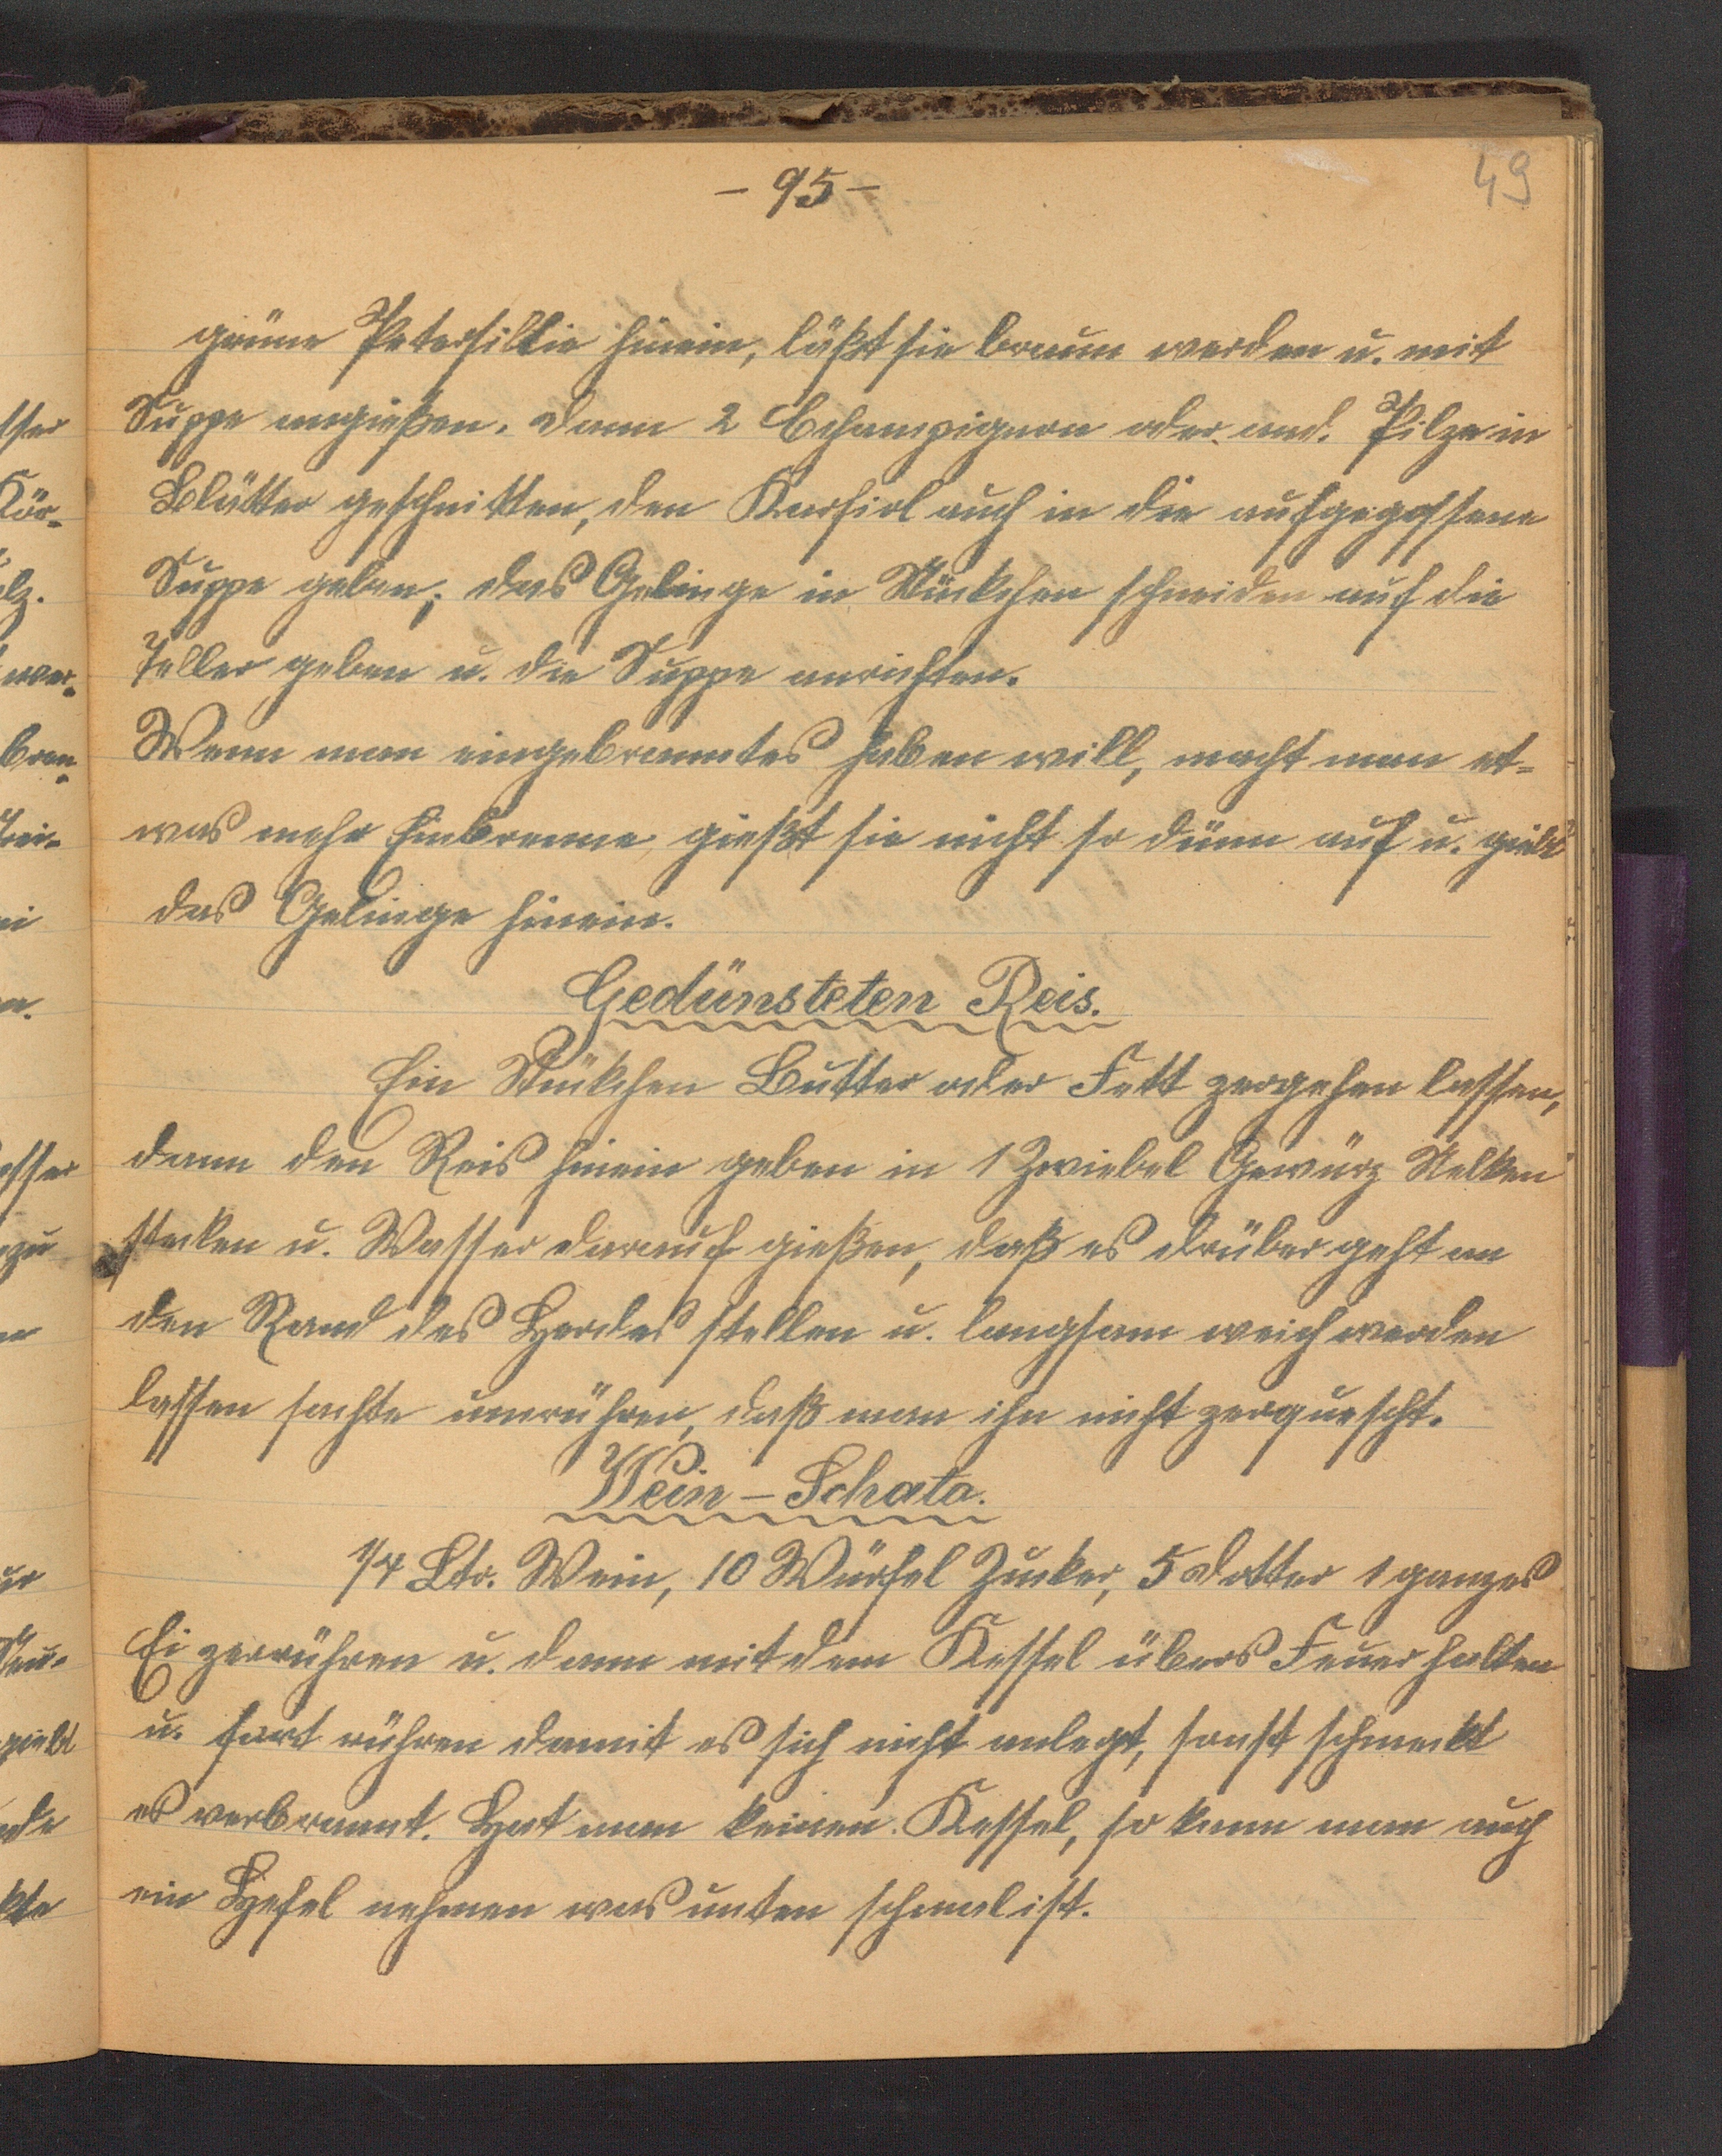 - 95 -
49
grüne Petersillie hinein, läßt sie braun werden u. mit
Suppe angießen. Dann 2 Echampignon oder and. Pilze in
Blätter geschnitten, den Karfiol auch in die aufgegossene
Suppe geben; das Gelinge in Stückchen schneiden auf die
Teller geben u. die Suppe anrichten.
Wenn man eingebranntes haben will, macht man et-
was mehr Einbrenne, gießt sie nicht so dünn auf u. giebt
das Gelinge hinein.
Gedünsteten Reis.
Ein Stükchen Butter oder Fett zergehen lassen,
dann den Reis hinein geben in 1 Zwiebel Gewürz Nelken
stecken u. Wasser darauf gießen, daß es drüber geht an
den Rand des Herdes stellen u. langsam weich werden
lassen sachte umrühren, daß man ihn nicht zerquescht.
Wein-Schato.
1/4 Ltr. Wein, 10 Würfel Zucker, 5 Dotter 1 ganzes
Ei zerrühren u. dann mit dem Kessel übers Feuer halten
u. fort rühren damit es sich nicht anlegt, sonst schmeckt
es verbrannt. Hat man keinen Kessel, so kann man auch
ein Hefel nehmen was unten schmal ist.